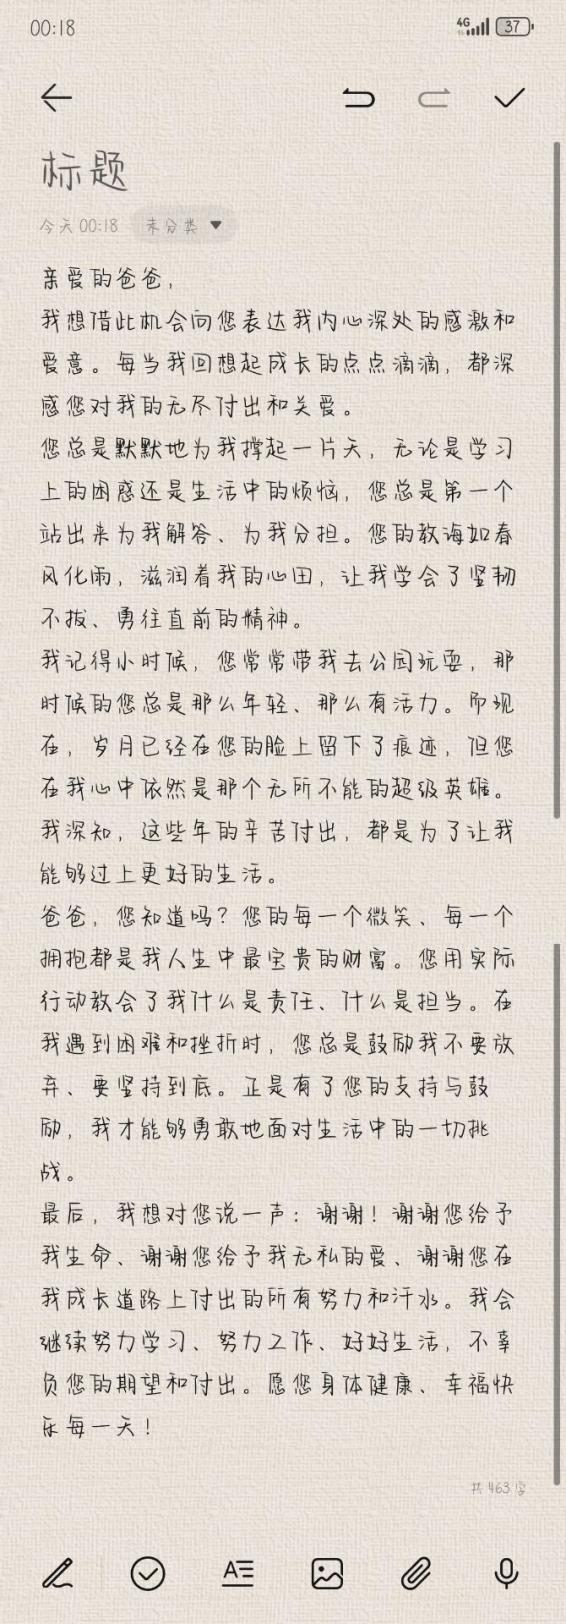 00:18
4G
37
标题
今天 00:18 未分类
亲爱的爸爸，
我想借此机会向您表达我内心深处的感激和
爱意。每当我回想起成长的点点滴滴，都深
感您对我的无尽付出和关爱。
您总是默默地为我撑起一片天，无论是学习
上的困惑还是生活中的烦恼，您总是第一个
站出来为我解答、为我分担。您的教诲如春
风化雨，滋润着我的心田，让我学会了坚韧
不拔、勇往直前的精神。
我记得小时候，您常常带我去公园玩耍，那
时候的您总是那么年轻、那么有活力。而现
在，岁月已经在您的脸上留下了痕迹，但您
在我心中依然是那个无所不能的超级英雄。
我深知，这些年的辛苦付出，都是为了让我
能够过上更好的生活。
爸爸，您知道吗？您的每一个微笑、每一个
拥抱都是我人生中最宝贵的财富。您用实际
行动教会了我什么是责任、什么是担当。在
我遇到困难和挫折时，您总是鼓励我不要放
弃、要坚持到底。正是有了您的支持与鼓
励，我才能够勇敢地面对生活中的一切挑
战。
最后，我想对您说一声：谢谢！谢谢您给予
我生命、谢谢您给予我无私的爱、谢谢您在
我成长道路上付出的所有努力和汗水。我会
继续努力学习、努力工作、好好生活，不辜
负您的期望和付出。愿您身体健康、幸福快
乐每一天！
共 463 字